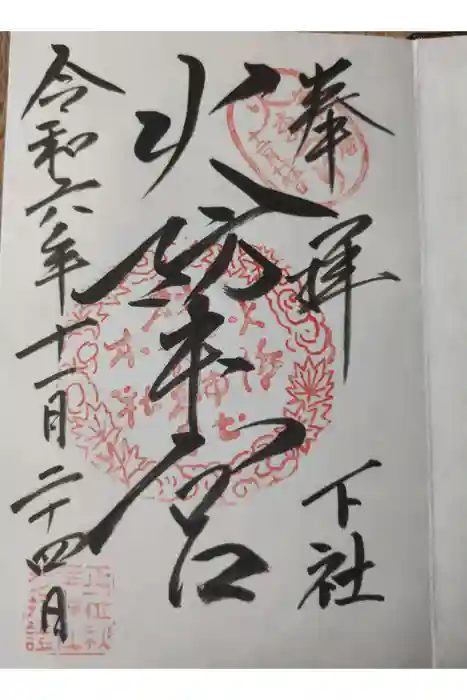 奉拝
下社
火防本宮
令和六年十一月二十四日